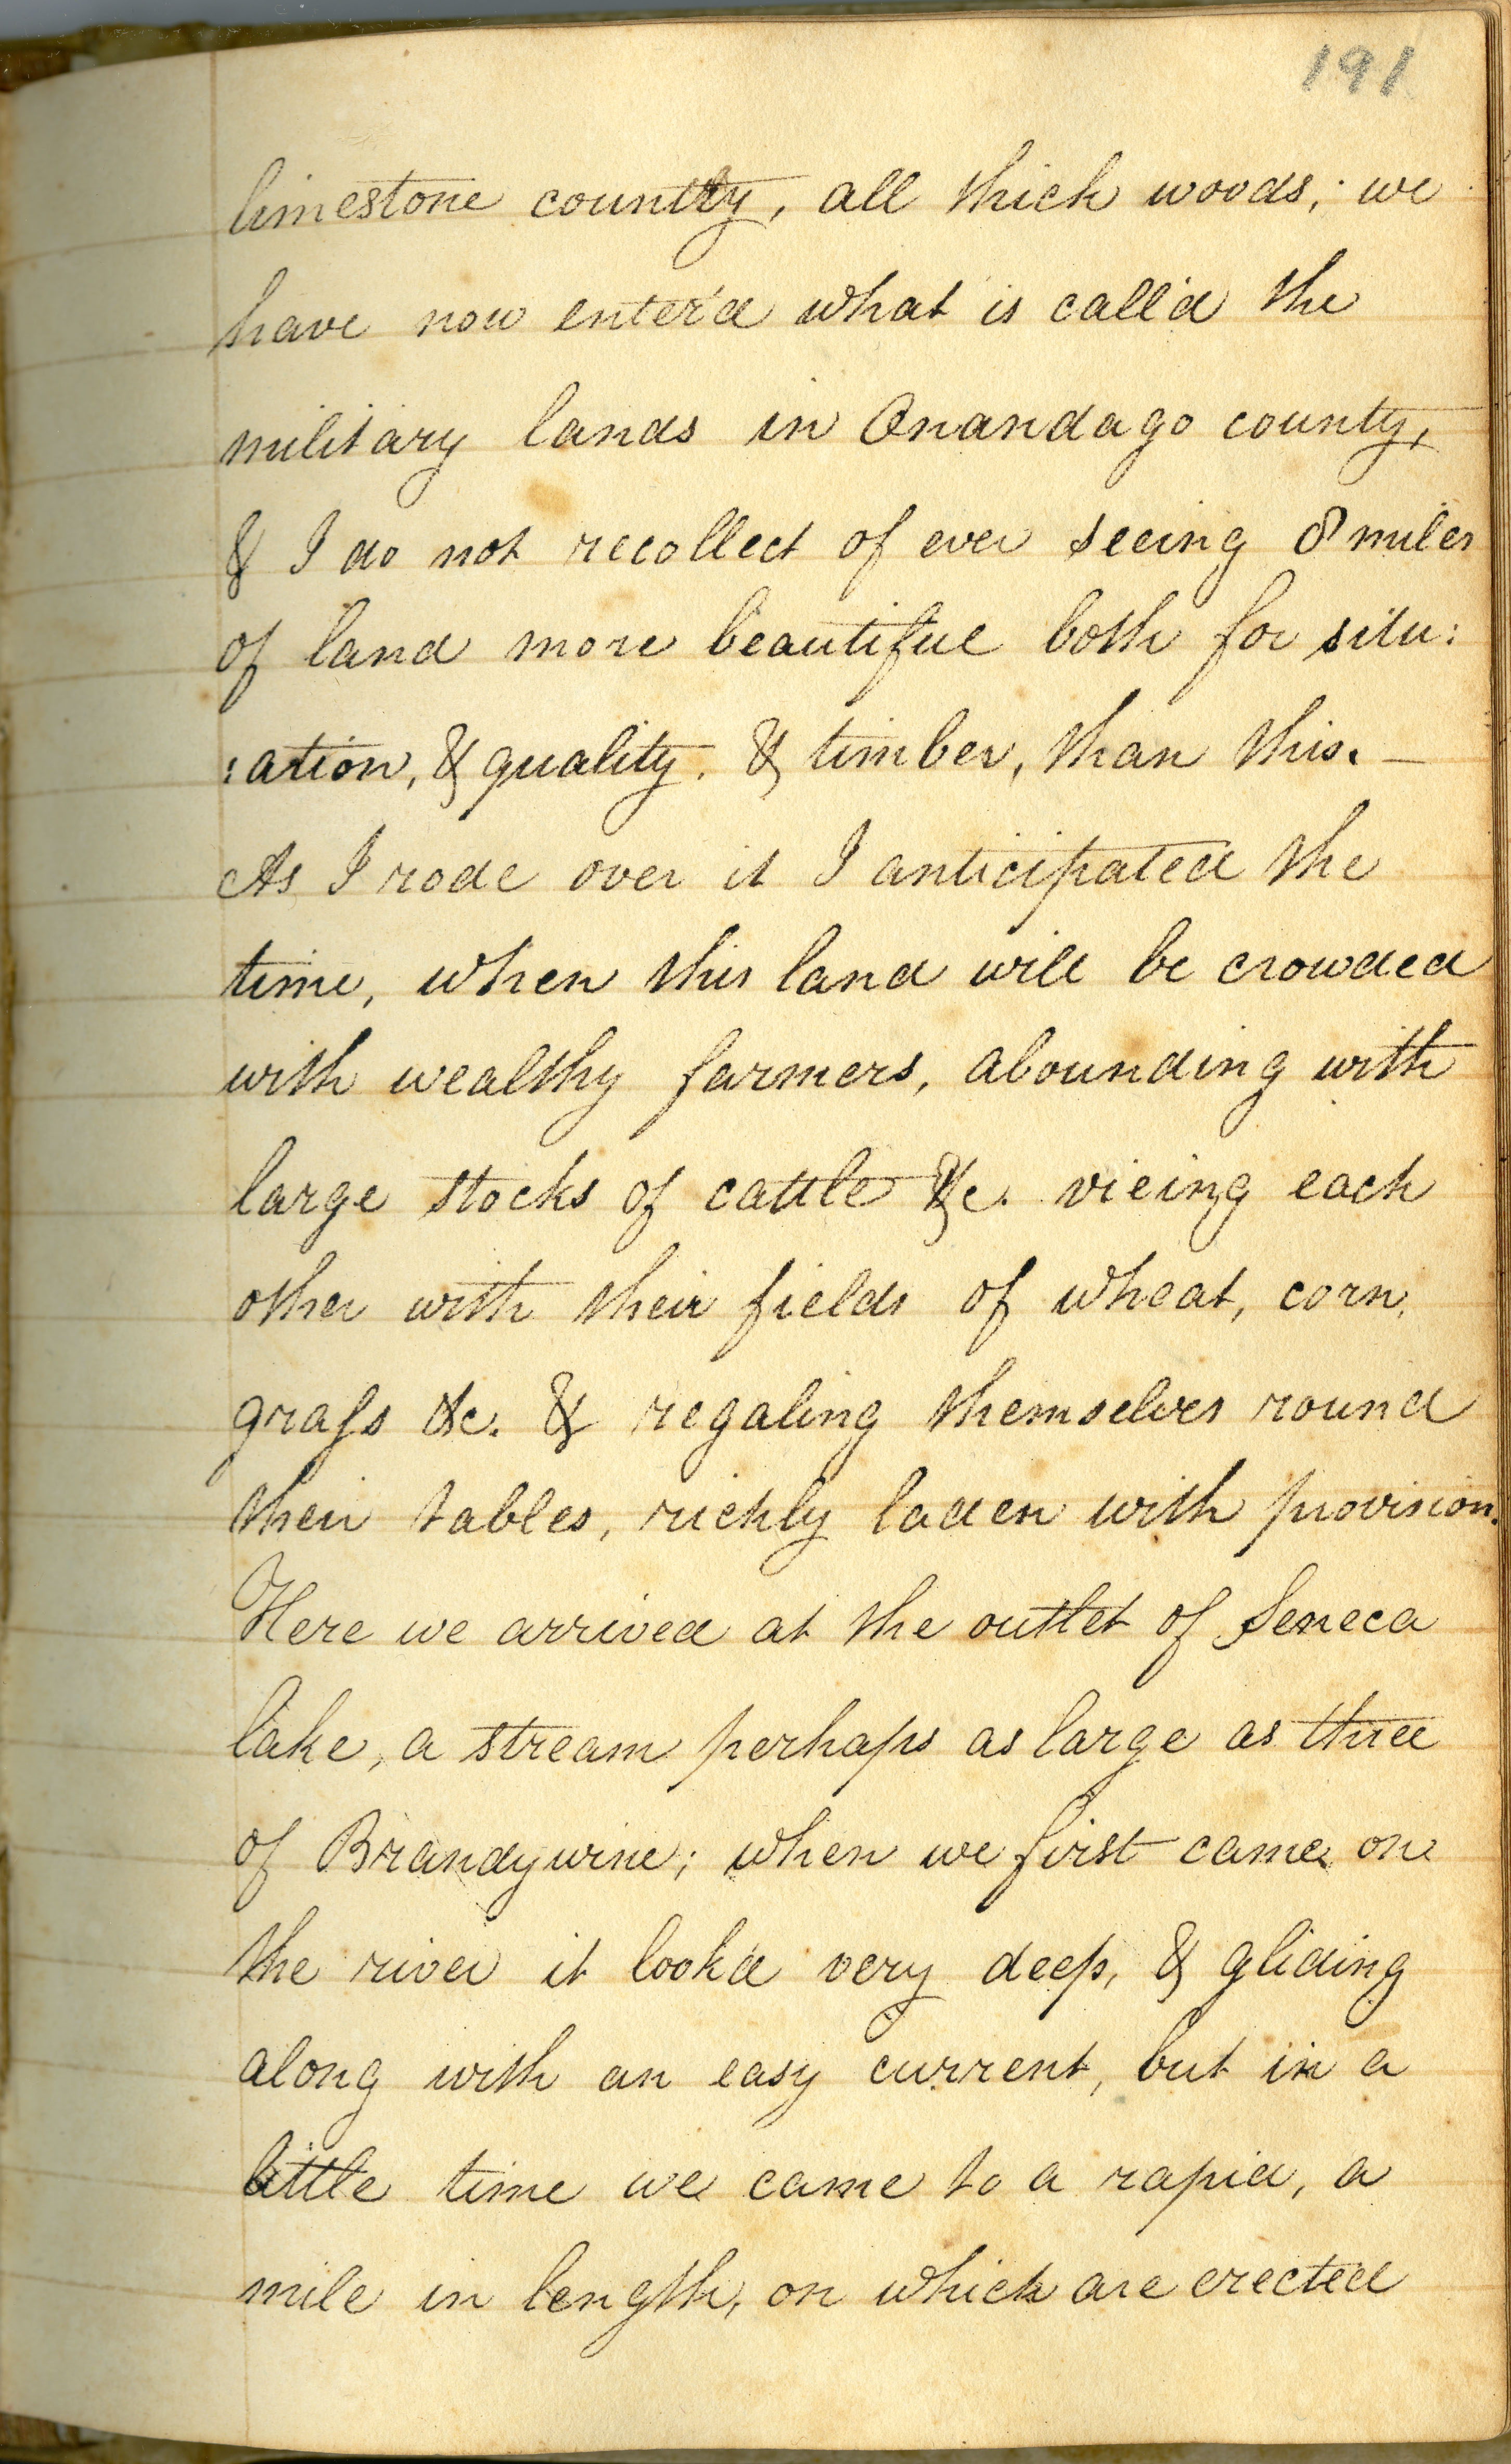 191
limestone country, all thick woods; we
have now enter'd what is call'd the
military lands in Onandago county,
& I do not recollect of ever seeing 8 miles
of land more beautiful both for situ:
:ation, & quality. & timber, than this. —
As I rode over it I anticipated the
time, when this land will be crowded
with wealthy farmers, abounding with
large stocks of cattle &c. vieing each
other with their fields of wheat, corn,
grass &c. & regaling themselves round
their tables, richly laden with provision.
Here we arrived at the outlet of Seneca
lake, a stream perhaps as large as three
of Brandywine; when we first came on
the river it look'd very deep, & gliding
along with an easy current, but in a
little time we came to a rapid, a
mile in length, on which are erected